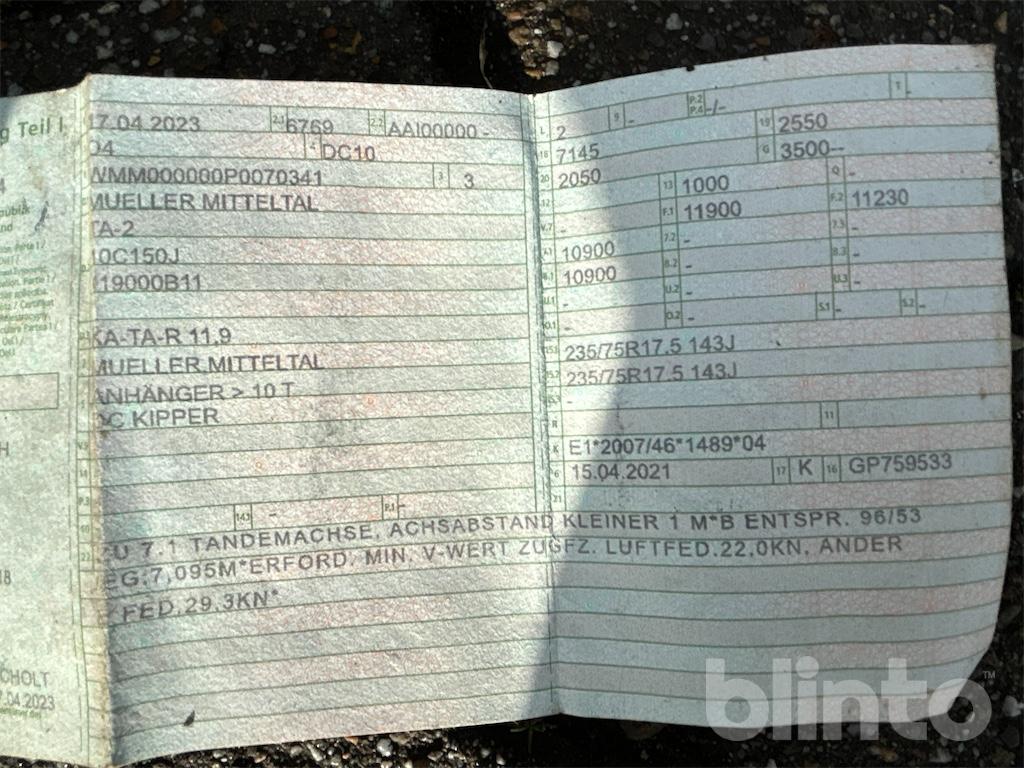 g Teil I
17.04.2023 2.1 6769 2.2 AAI00000 -
O4 4 DC10
WMM000000P0070341 3 3
MUELLER MITTELTAL
TA-2
10C150J
019000B11
KA-TA-R 11,9
MUELLER MITTELTAL
ANHÄNGER > 10 T
OC KIPPER
14.1 - P.1 -
L 2 9 - P.2 P.4 -/- T -
18 7145 19 2550
20 2050 G 3500--
12 - 13 1000 Q -
V.7 - F.1 11900 F.2 11230
7.1 10900 7.2 - 7.3 -
8.1 10900 8.2 - 8.3 -
U.1 - U.2 - U.3 -
O.1 - O.2 - S.1 - S.2 -
15.1 235/75R17.5 143J
15.2 235/75R17.5 143J
15.3 -
R 11
K E1*2007/46*1489*04
6 15.04.2021 17 K 16 GP759533
21
ZU 7.1 TANDEMACHSE, ACHSABSTAND KLEINER 1 M*B ENTSPR. 96/53
EG:7,095M*ERFORD. MIN. V-WERT ZUGFZ. LUFTFED.22,0KN, ANDER
FED.29,3KN*
CHOLT
.04.2023
blinto™